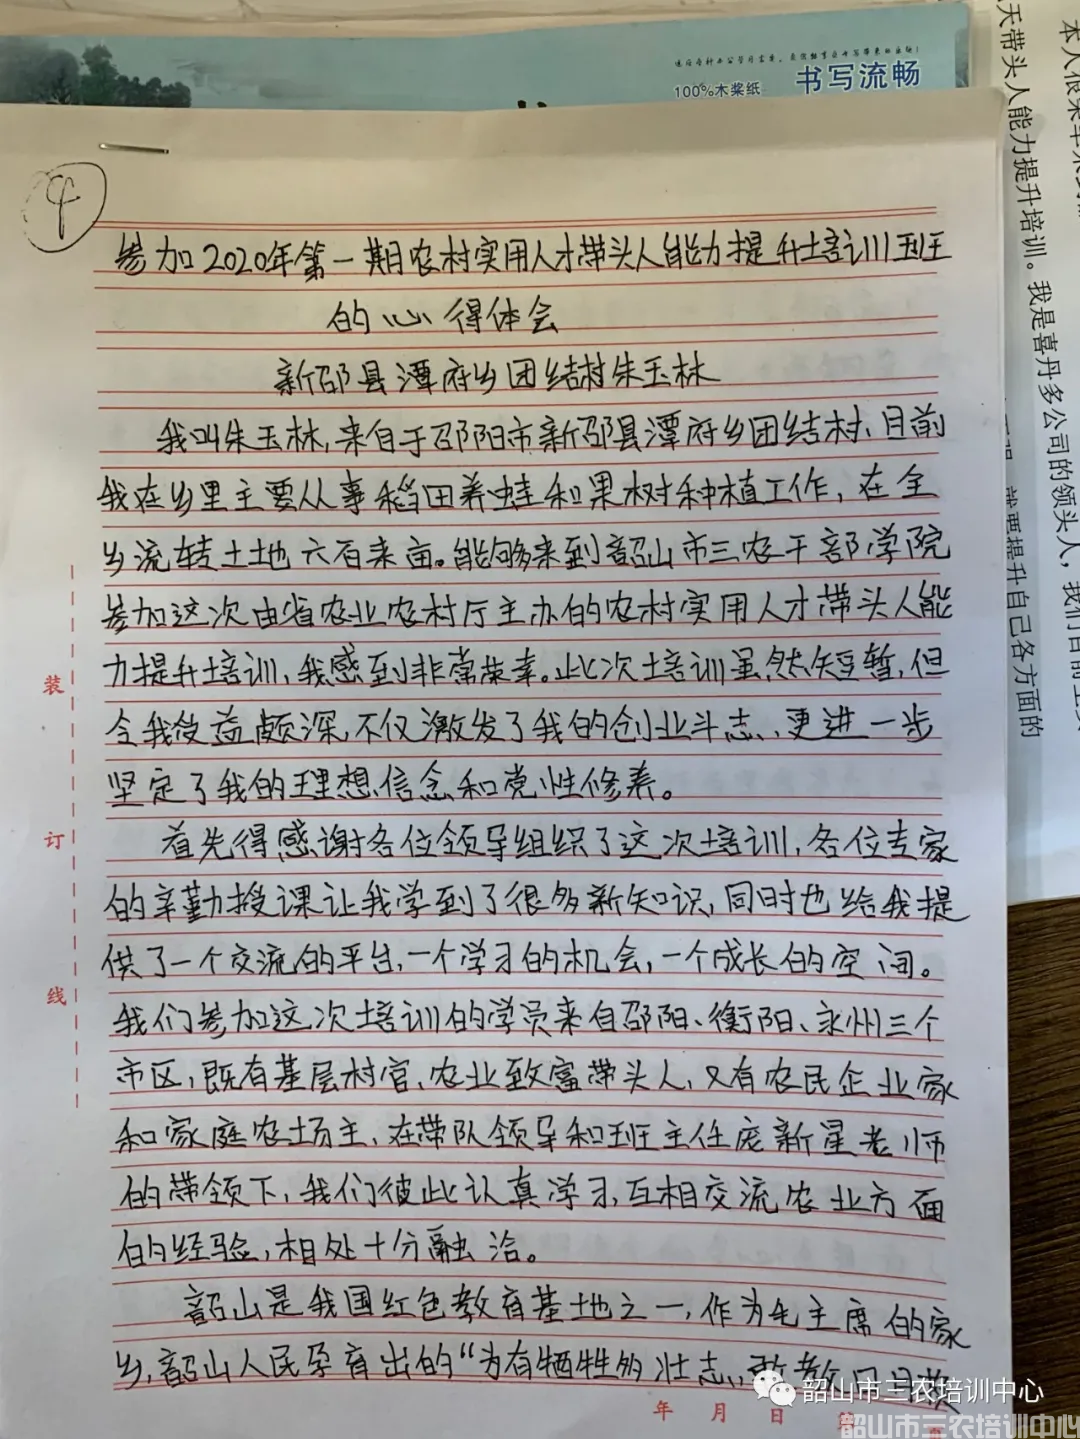 100%木桨纸
书写流畅
4
参加2020年第一期农村实用人才带头人能力提升培训班
的心得体会
新邵县潭府乡团结村朱玉林
我叫朱玉林，来自于邵阳市新邵县潭府乡团结村、目前
我在乡里主要从事稻田养蛙和果树种植工作，在全
乡流转土地六百来亩。能够来到韶山市三农干部学院
参加这次由省农业农村厅主办的农村实用人才带头人能
力提升培训，我感到非常荣幸。此次培训虽然短暂，但
令我受益颇深，不仅激发了我的创业斗志，更进一步
坚定了我的理想信念和党性修养。
首先得感谢各位领导组织了这次培训，各位专家
的辛勤授课让我学到了很多新知识，同时也给我提
供了一个交流的平台，一个学习的机会，一个成长的空间。
我们参加这次培训的学员来自邵阳、衡阳、永州三个
市区，既有基层村官、农业致富带头人，又有农民企业家
和家庭农场主，在带队领导和班主任庞新星老师
的带领下，我们彼此认真学习，互相交流农业方面
的经验，相处十分融洽。
韶山是我国红色教育基地之一，作为毛主席的家
乡，韶山人民孕育出的“为有牺牲多壮志，敢教日月换
装
订
线
年 月 日 第
天带头人能力提升培训。我是喜丹多公司的领头人，我们目前主
就要提升自己各方面的
韶山市三农培训中心
韶山市三农培训中心